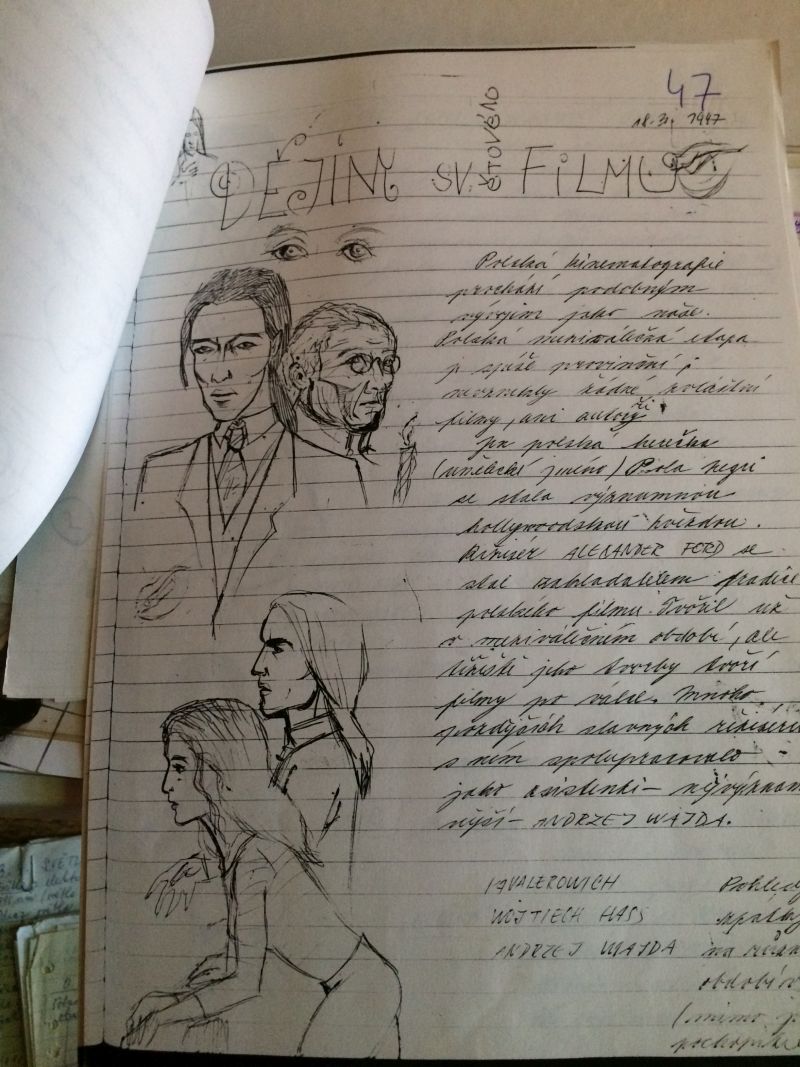 47
18. XI 1997
DĚJINY SVĚTOVÉHO FILMU
Polská kinematografie
prochází podobným
vývojem jako naše.
Polská meziválečná etapa
je spíše provinční;
nevznikly žádné zvláštní
filmy, ani autoři
Jen polská herečka
(umělecké jméno) Pola Negri
se stala významnou
hollywoodskou hvězdou.
Režisér ALEXANDER FORD se
stal zakladatelem tradice
polského filmu. Tvořil už
v meziválečném období, ale
těžiště jeho tvorby tvoří
filmy po válce. Mnoho
pozdějších slavných režisérů
s ním spolupracovalo -
jako asistenti - nejvýznam
nější - ANDRZEJ WAJDA.
KAVALEROWICH
WOJTIECH HASS
ANDRZEJ WAJDA
Pohledy
zpátky
na
období
(mimo j